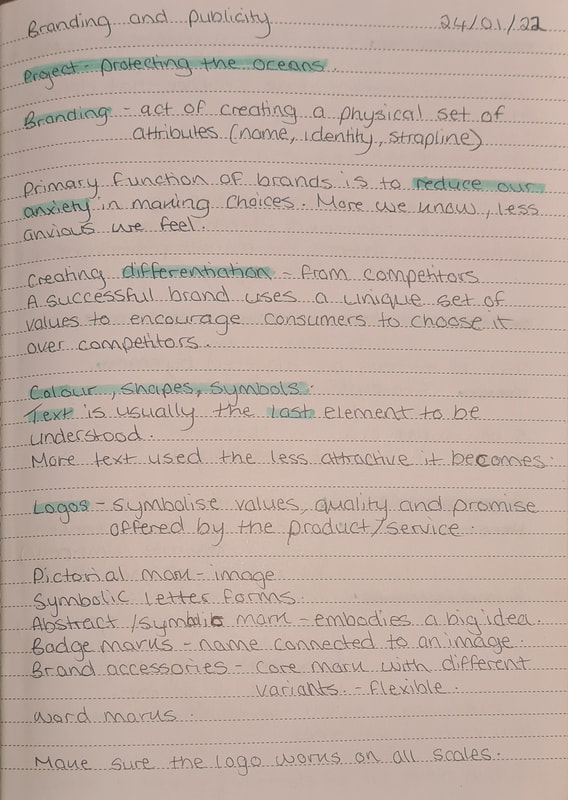 Branding and Publicity 24/01/22
Project - Protecting the oceans.
Branding - act of creating a physical set of
attributes (name, identity, strapline)
Primary function of brands is to reduce our
anxiety in making choices. More we know, less
anxious we feel.
Creating differentiation - from competitors
A successful brand uses a unique set of
values to encourage consumers to choose it
over competitors.
Colour, shapes, symbols.
Text is usually the last element to be
understood.
More text used the less attractive it becomes.
Logos - symbolise values, quality and promise
offered by the product/service.
Pictorial mark - image
Symbolic letter forms.
Abstract/symbolic mark - embodies a big idea.
Badge marks - name connected to an image.
Brand accessories - core mark with different
variants. - flexible.
word marks.
Make sure the logo works on all scales.